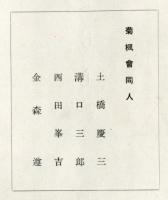 菊楓會同人
土橋慶三
溝口三郎
西田峯吉
金森遵